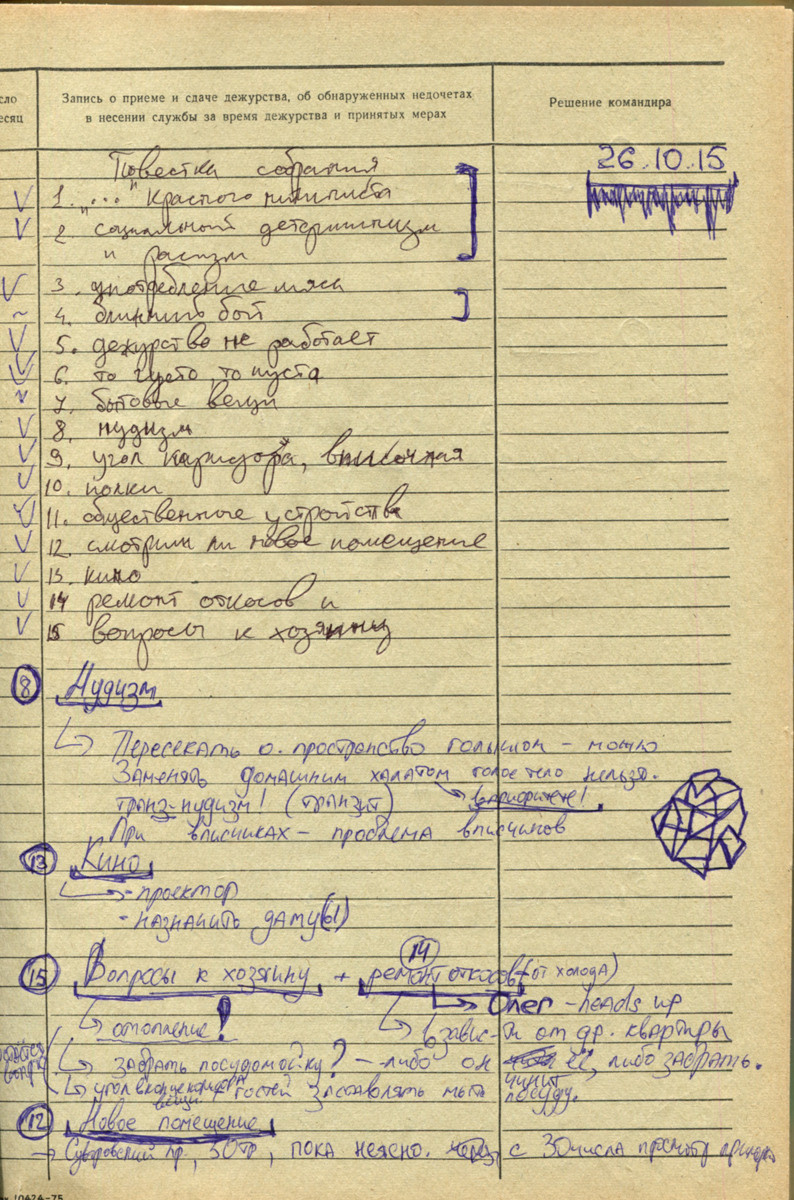 сло
есяц
Запись о приеме и сдаче дежурства, об обнаруженных недочетах
в несении службы за время дежурства и принятых мерах
Решение командира
Повестка собрания
26.10.15
1. "..." Красного
2. социальный детерминизм
и расизм
3. употребление мяса
4. блинный бой
5. дежурство не работает
6. то густо, то пуста
7. бытовые вещи
8. нудизм
9. угол коридора, вписочная
10. полки
11. общественные устройства
12. смотрим ли новое помещение
13. кино
14 ремонт откосов и
15 вопросы к хозяину
8 Нудизм
Пересекать о. пространство голышом - можно
Заменять домашним халатом голое тело нельзя.
транз-нудизм! (транзит) в приоритете!
При вписчиках - проблема вписчиков
13 Кино
- проектор
- назначить дату(ы)
14
15 Вопросы к хозяину + ремонт откосов (от холода)
Олег - heads up
отопление!
в завис-ти от др. квартиры
забрать посудомойку? - либо он чинит её, либо забрать.
угол в конце коридора вещи
гостей заставлять мыть посуду.
12 Новое помещение
→ Суворовский пр, 30тр, пока неясно. с 30 числа просмотр
10424-75